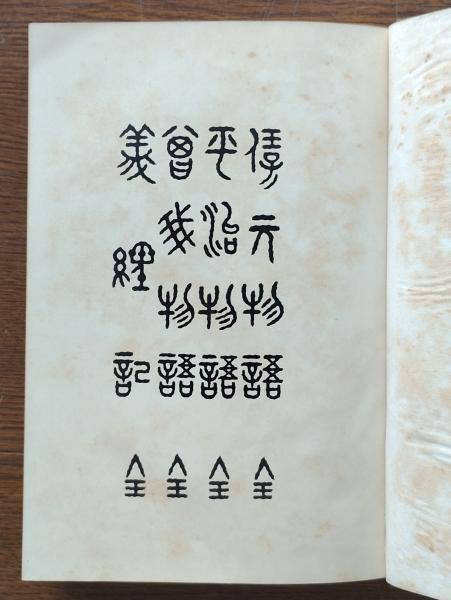 保元物語全
平治物語全
曾我物語全
義經記全